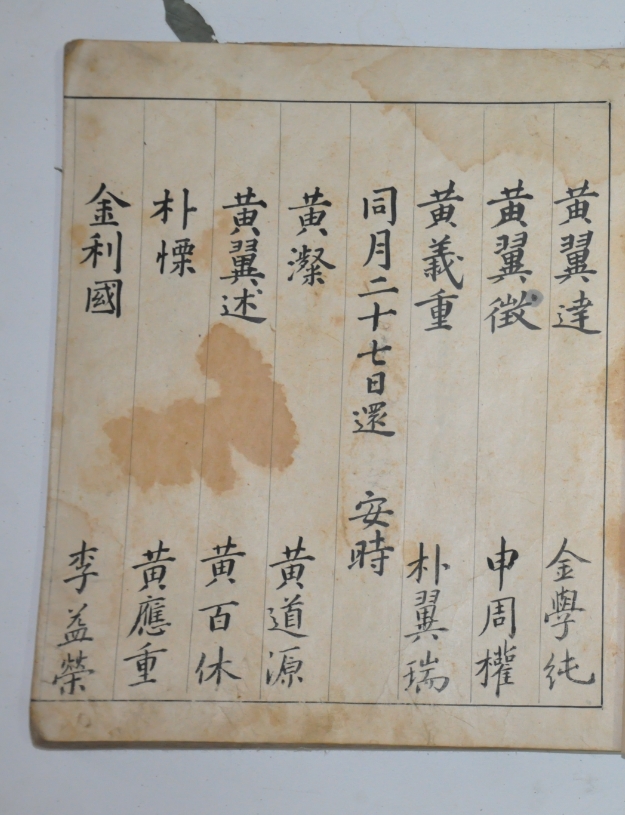 黃翼達 金學純
黃翼徵 申周權
黃義重 朴翼瑞
同月二十七日還 安時
黃澯 黃道源
黃翼述 黃百休
朴慄 黃應重
金利國 李益榮